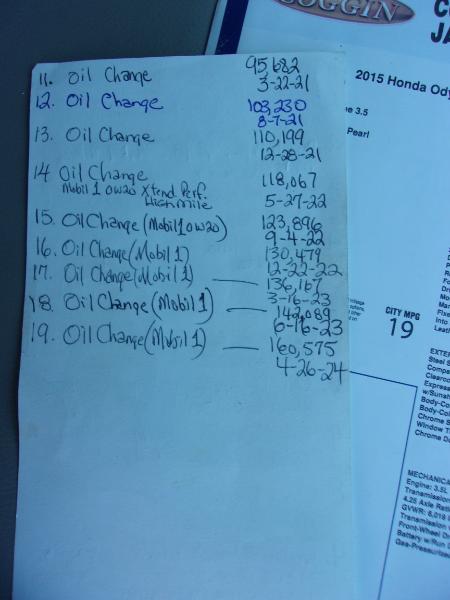 COGGIN
JA
2015 Honda Ody
11. Oil Change 95,682
3-22-21
12. Oil Change 103,230
8-7-21
13. Oil Change 110,199
12-28-21
14 Oil Change 118,067
Mobil 1 0W20 Xtend Perf. 5-27-22
High Mile
15. Oil Change (Mobil 1 0W20) 123,896
9-4-22
16. Oil Change (Mobil 1) 130,479
12-22-22
17. Oil Change (Mobil 1) — 136,167
3-16-23
18. Oil Change (Mobil 1) — 142,089
6-16-23
19. Oil Change (Mobil 1) — 160,575
4-26-24
e 3.5
Pearl
CITY MPG
19
EXTE
Steel S
Compa
Clearco
Express
w/Sunsh
Body-Col
Body-Col
Chrome S
Window T
Chrome Do
MECHANICA
Engine: 3.5L
Transmission
4.25 Axle Rati
GVWR: 6,019
Transmission
Front-Wheel Dr
Battery w/Run D
Gas-Pressurized